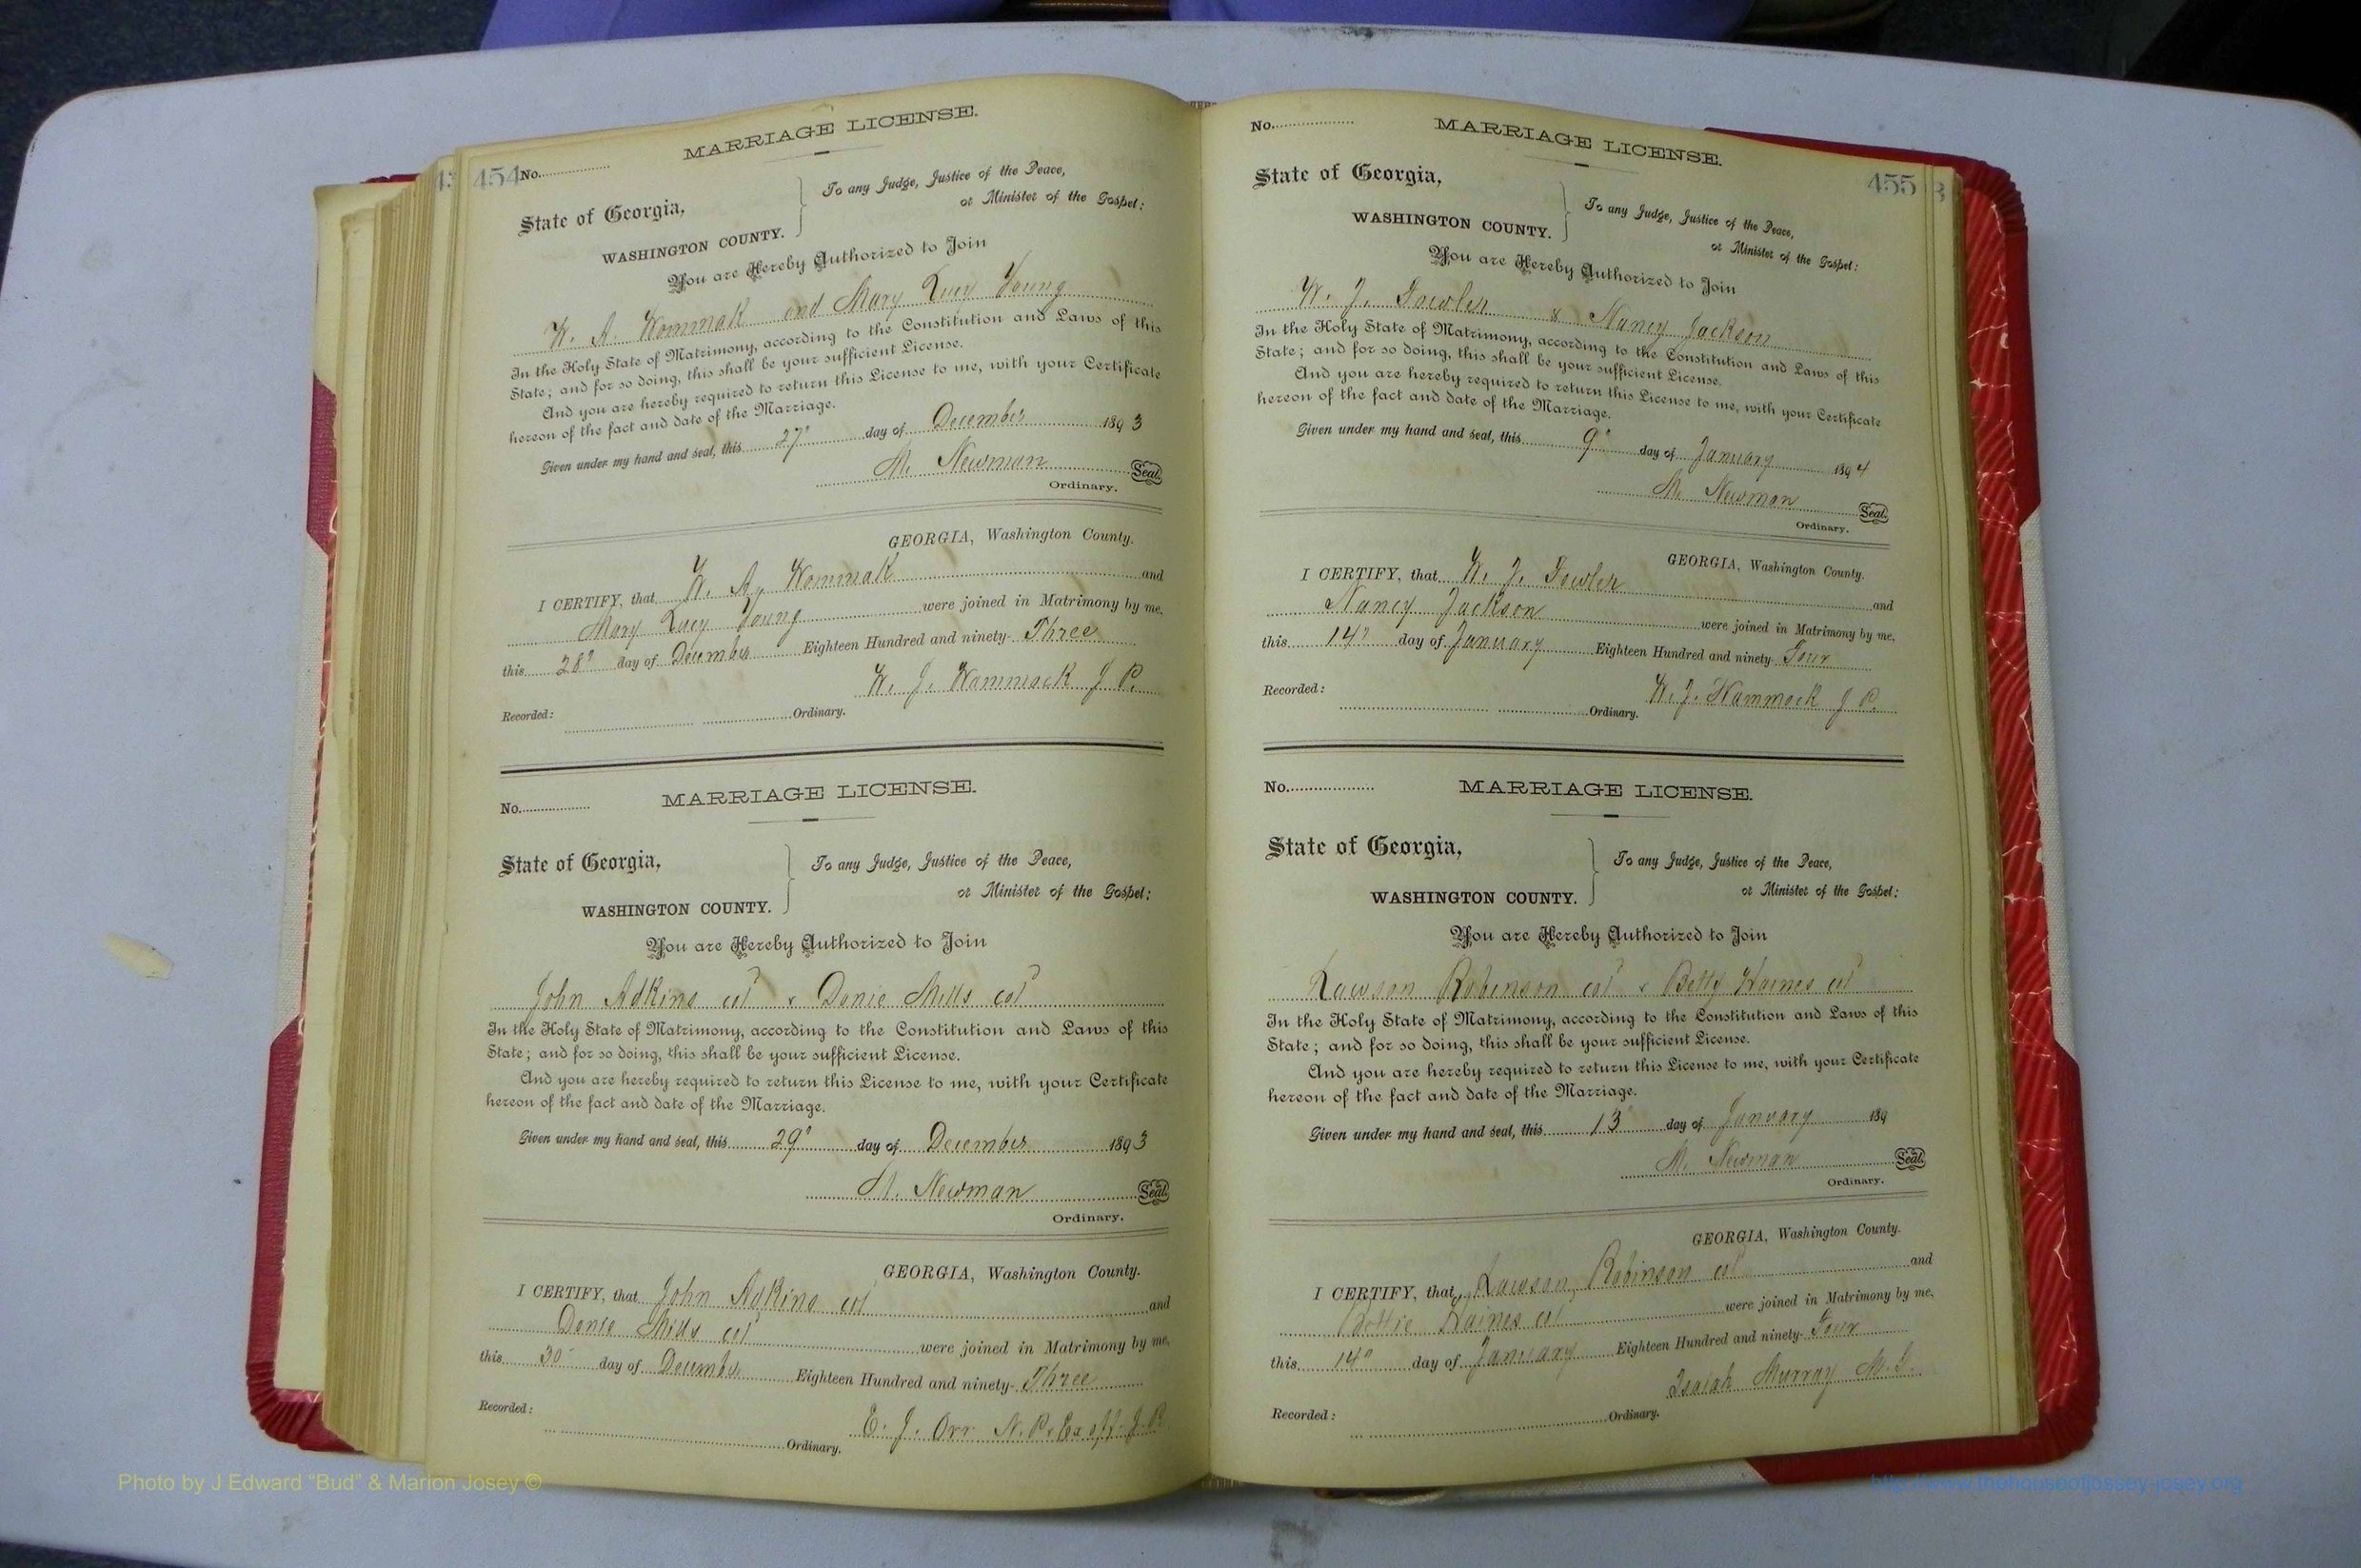 454
No.
MARRIAGE LICENSE.
State of Georgia,
WASHINGTON COUNTY.
To any Judge, Justice of the Peace,
or Minister of the Gospel:
You are Hereby Authorized to Join
W. A. Wommak and Mary Lucy Young
In the Holy State of Matrimony, according to the Constitution and Laws of this
State; and for so doing, this shall be your sufficient License.
And you are hereby required to return this License to me, with your Certificate
hereon of the fact and date of the Marriage.
Given under my hand and seal, this 27" day of December 1893
M. Newman Seal.
Ordinary.
GEORGIA, Washington County.
I CERTIFY, that W. A. Wommak and
Mary Lucy Young were joined in Matrimony by me,
this 28" day of December Eighteen Hundred and ninety- Three
W. J. Wammack J P.
Recorded:
Ordinary.
No.
MARRIAGE LICENSE.
State of Georgia,
WASHINGTON COUNTY.
To any Judge, Justice of the Peace,
or Minister of the Gospel:
You are Hereby Authorized to Join
John Adkins col & Denie Mills col
In the Holy State of Matrimony, according to the Constitution and Laws of this
State; and for so doing, this shall be your sufficient License.
And you are hereby required to return this License to me, with your Certificate
hereon of the fact and date of the Marriage.
Given under my hand and seal, this 29" day of December 1893
M. Newman Seal.
Ordinary.
GEORGIA, Washington County.
I CERTIFY, that John Adkins col and
Denie Mills col were joined in Matrimony by me,
this 30 day of December Eighteen Hundred and ninety- Three
E. J. Orr N. P. & Ex off. J. P.
Recorded:
Ordinary.
455
No.
MARRIAGE LICENSE.
State of Georgia,
WASHINGTON COUNTY.
To any Judge, Justice of the Peace,
or Minister of the Gospel:
You are Hereby Authorized to Join
W. J. Fowler & Nancy Jackson
In the Holy State of Matrimony, according to the Constitution and Laws of this
State; and for so doing, this shall be your sufficient License.
And you are hereby required to return this License to me, with your Certificate
hereon of the fact and date of the Marriage.
Given under my hand and seal, this 9" day of January 1894
M. Newman Seal.
Ordinary.
GEORGIA, Washington County.
I CERTIFY, that W. J. Fowler and
Nancy Jackson were joined in Matrimony by me,
this 14" day of January Eighteen Hundred and ninety- Four
W. J. Wammack J P.
Recorded:
Ordinary.
No.
MARRIAGE LICENSE.
State of Georgia,
WASHINGTON COUNTY.
To any Judge, Justice of the Peace,
or Minister of the Gospel:
You are Hereby Authorized to Join
Lawson Robinson col & Betty Haines col
In the Holy State of Matrimony, according to the Constitution and Laws of this
State; and for so doing, this shall be your sufficient License.
And you are hereby required to return this License to me, with your Certificate
hereon of the fact and date of the Marriage.
Given under my hand and seal, this 13" day of January 189
M. Newman Seal.
Ordinary.
GEORGIA, Washington County.
I CERTIFY, that Lawson Robinson col and
Bettie Haines col were joined in Matrimony by me,
this 14" day of January Eighteen Hundred and ninety- Four
Isaiah Murray M. G.
Recorded:
Ordinary.
Photo by J Edward "Bud" & Marion Josey ©
http://www.thehouseofjossey-josey.org